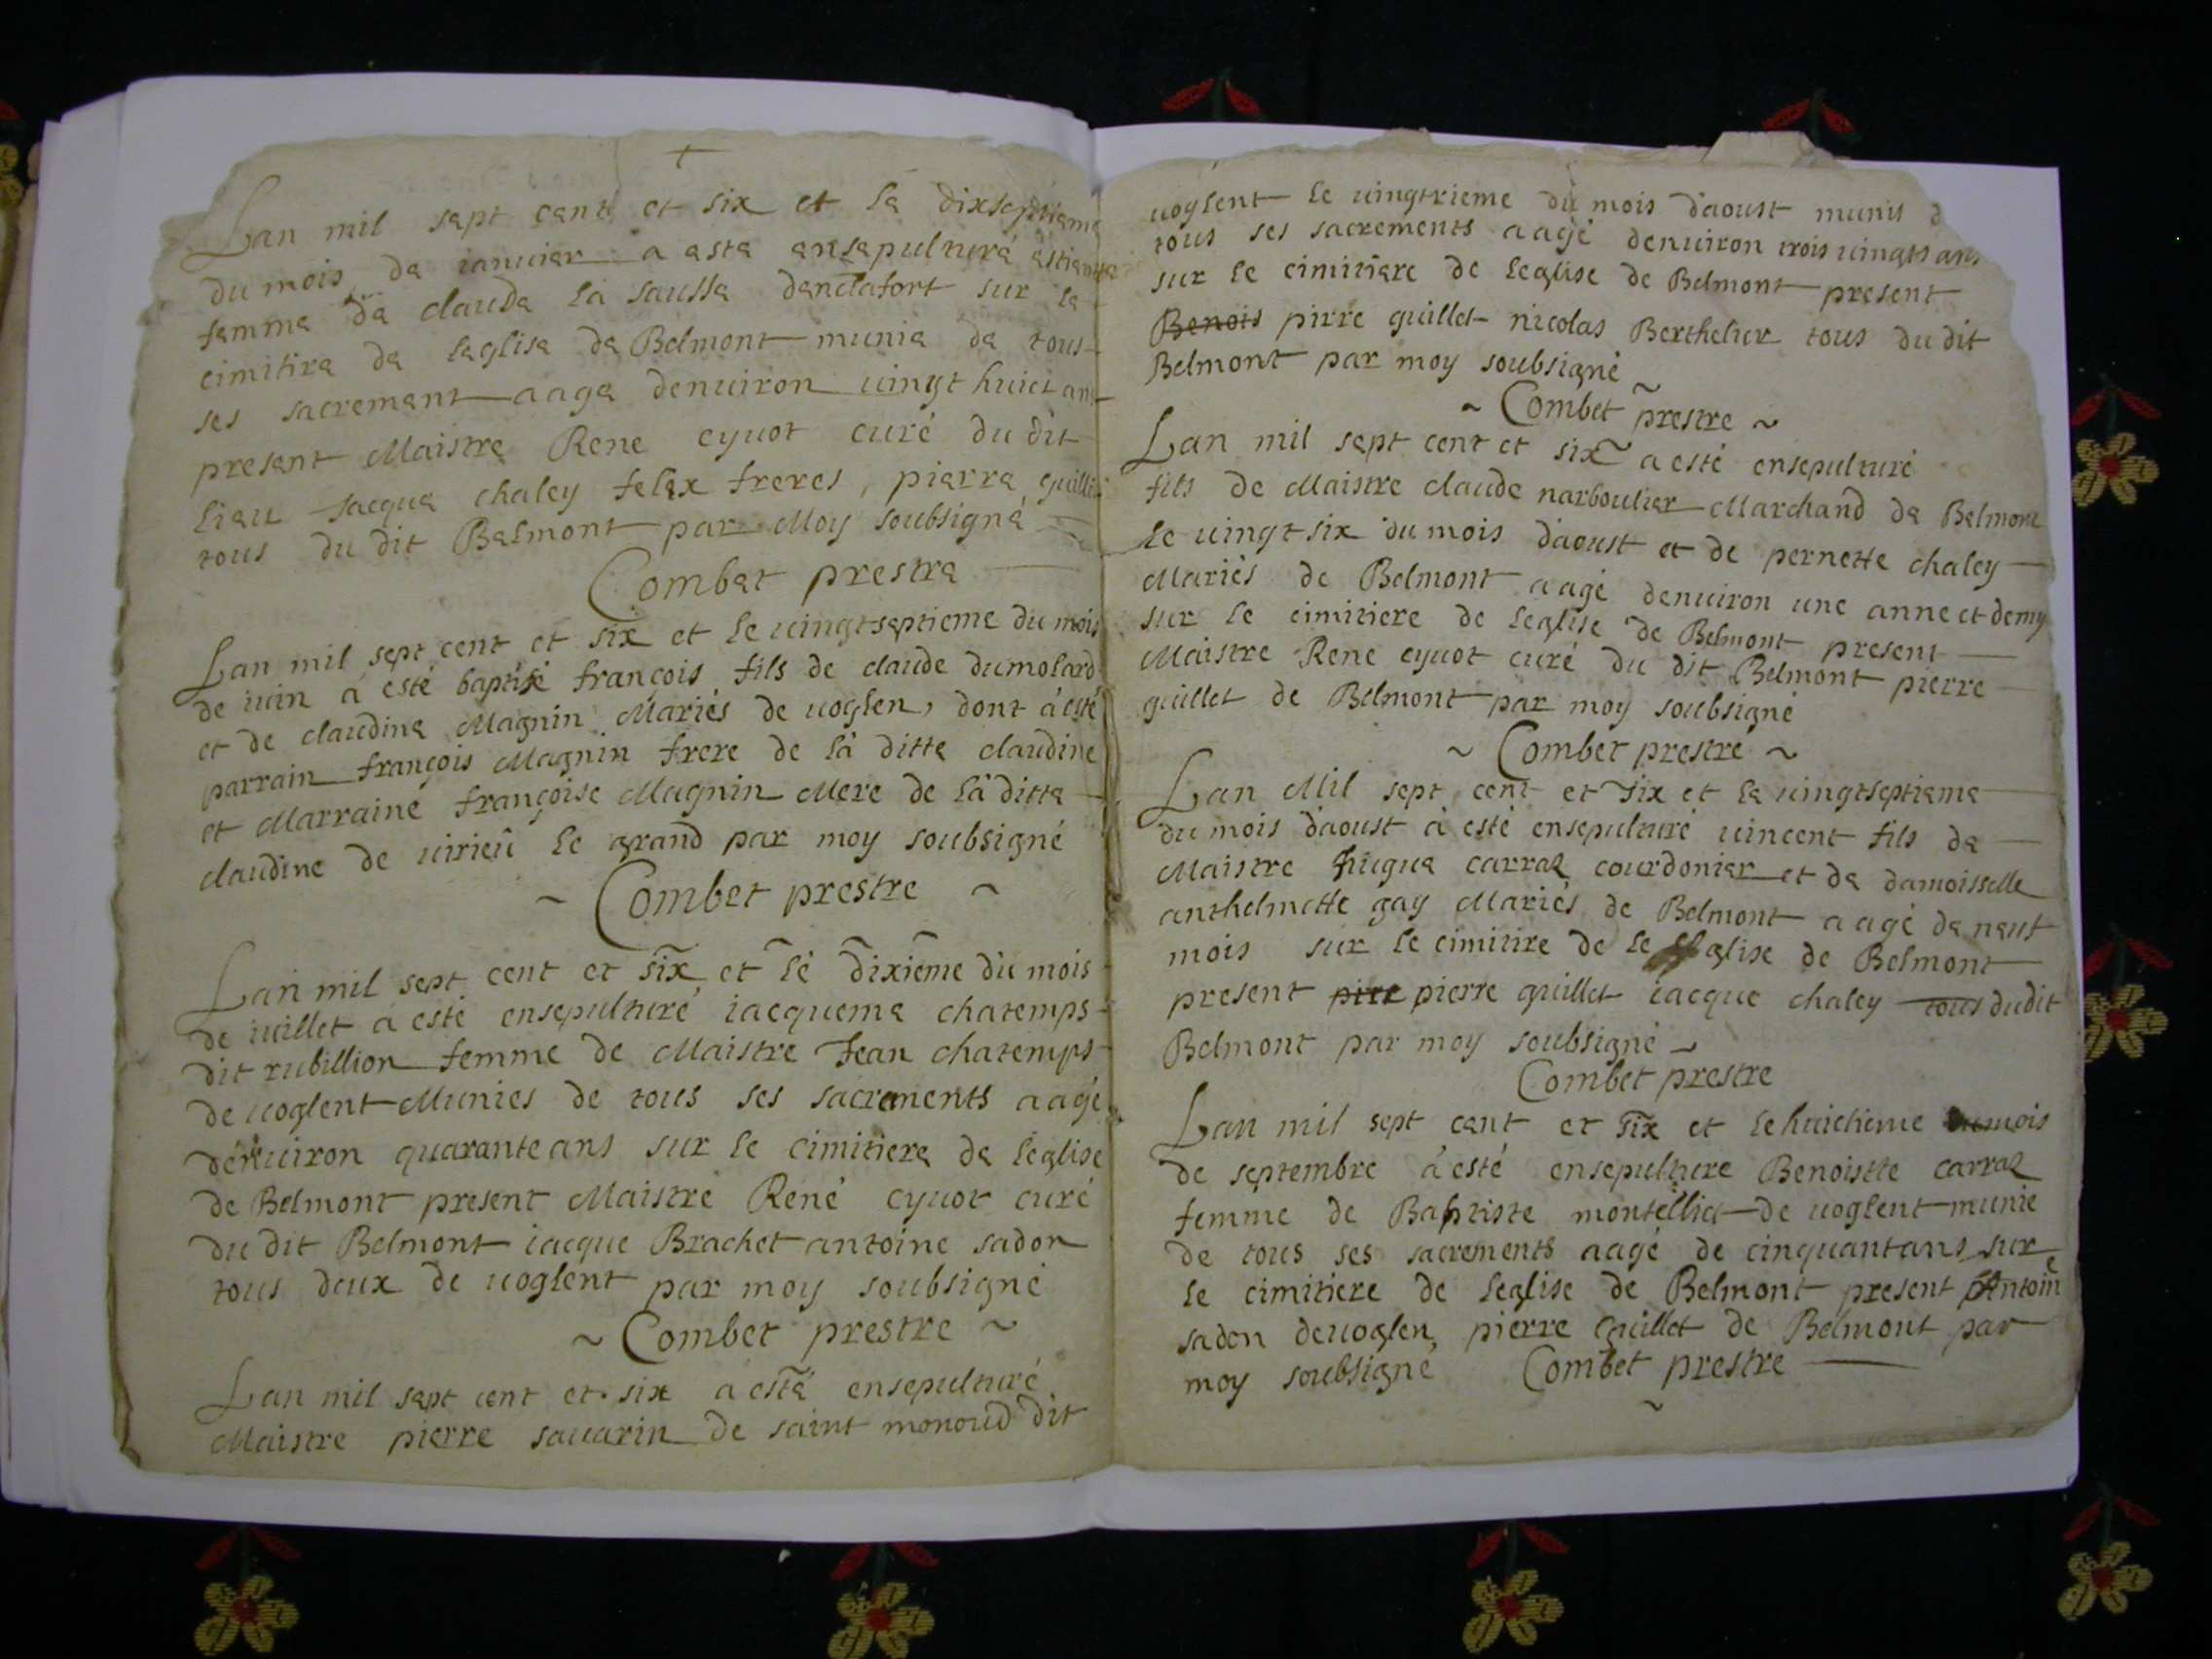 Lan mil sept cant et six et la dixseptiama
du mois da ianuiar a asta ansapulturá astiannaa
famma da clauda la saussa danclafort sur la
cimitira da laglisa da Belmont munia da tous
ses sacremant aaga denuiron uingt huict ans
presant Maistra Rene eyuot curé du dit
liau Jacqua chaley felax freres, piarra guillet
tous du dit Balmont par Moy soubsigná
Combat prestra
Lan mil sept cent et six et le uingtseptieme du mois
de iuin a esté baptisé françois fils de claude dumolard
et de claudina Magnin Mariés de uoglen, dont à esté
parrain françois Magnin frere de la ditta claudine
et Marraine françoise Magnin Mere de la ditta
claudine de uirieû le grand par moy soubsigné
~ Combet prestre ~
Lan mil sept cent et six et le dixieme du mois
de iuillet a esté ensepulturé iacquema chatemps
dit rubillion femme de Maistre Jean chatemps
de uoglent Munies de tous ses sacrements aagé
denuiron quarante ans sur le cimitiera da leglise
de Belmont present Maistre René eyuot curé
du dit Belmont iacque Brachet antoine sadon
tous deux de uoglent par moy soubsigné
~ Combet prestre ~
Lan mil sapt cent et six a está ensepulturé
Maistre pierre sauarin de saint monoud dit
uoglent le uingtrieme du mois daoust munis d
tous ses sacrements aagé denuiron trois uingts ans
sur le cimitiare de leglise de Belmont present
Benois pirre guillet nicolas Berthelier tous du dit
Belmont par moy soubsigné
~ Combet prestre ~
Lan mil sept cent et six a esté ensepulturé
fils de Maistre claude narbouliar Marchand da Belmont
le uingt six du mois daoust et de pernette chaley
Mariés de Belmont aagé denuiron une anne et demy
sur le cimitiere de leglise de Belmont present
Maistre Rene eyuot curé du dit Belmont pierre
guillet de Belmont par moy soubsigné
~ Combet prestre ~
Lan Mil sept cent et six et la uingtseptiama
du mois daoust à esté ensepulturé uincent fils da
Maistre hugua carraz courdoniar et da damoisselle
anthelmette gay Mariés de Belmont aagé da nauf
mois sur le cimitire de le glise de Belmont
present pire pierre guillet iacque chaley tous dudit
Belmont par moy soubsigné
Combet prestre
Lan mil sept cant et six et le huictieme du mois
de septembre à esté ensepulture Benoistte carraz
femme de Baptiste montellier de uoglent munie
de tous ses sacrements aagé de cinquantans sur
le cimitiere de leglise de Belmont present Antoine
sadon de uoglen, pierre guillet de Belmont par
moy soubsigné Combet prestre